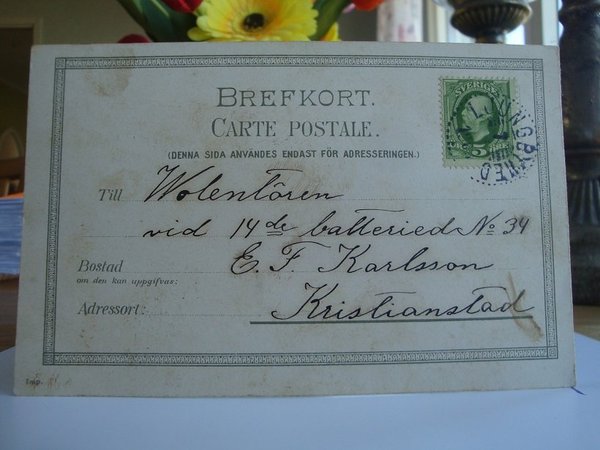 BREFKORT.
CARTE POSTALE.
(DENNA SIDA ANVÄNDES ENDAST FÖR ADRESSERINGEN.)
SVERIGE
5
LJUNGBYHED
Till Wolentören
vid 14de batteried No 34
Bostad E. F. Karlsson
om den kan uppgifvas:
Adressort: Kristianstad
Imp.